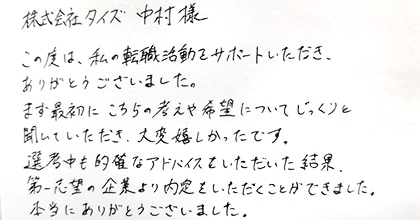 株式会社タイズ 中村様
この度は、私の転職活動をサポートいただき、
ありがとうございました。
まず最初にこちらの考えや希望についてじっくりと
聞いていただき、大変嬉しかったです。
選考中も的確なアドバイスをいただいた結果、
第一志望の企業より内定をいただくことができました。
本当にありがとうございました。